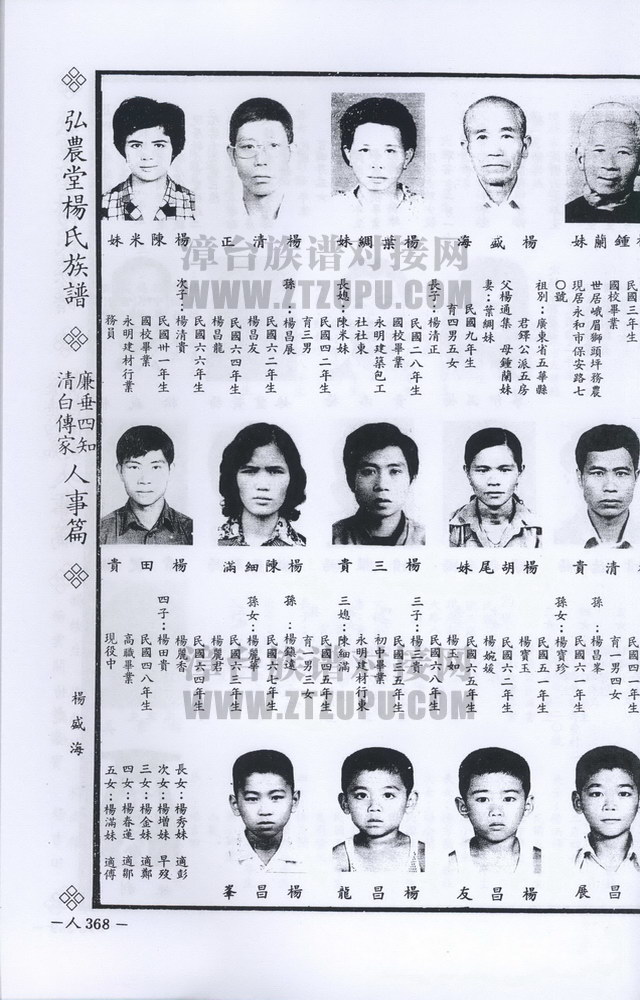 弘農堂楊氏族譜
廉垂四知
清白傳家
人事篇
楊盛海
鍾蘭妹
楊盛海
楊葉綢妹
楊清正
楊陳米妹
民國三年生
國校畢業
世居峨眉獅頭坪務農
現居永和市保安路七
〇號
祖別：廣東省五華縣
君鐸公派五房
父楊通集 母鍾蘭妹
妻：葉綢妹
民國九年生
育四男五女
長子：楊清正
民國二八年生
國校畢業
永明建築包工
社社東
長媳：陳米妹
民國四二年生
育三男
孫：楊昌展
民國六二年生
楊昌友
民國六四年生
楊昌龍
民國六六年生
次子：楊清貴
民國卅一年生
國校畢業
永明建材行業
務員
清貴
楊胡尾妹
楊三貴
楊陳細滿
楊田貴
民國四一年生
育一男四女
孫：楊昌峯
民國六一年生
孫女：楊寶珍
楊寶玉
民國六二年生
楊婉媛
民國六五年生
楊玉如
民國六八年生
三子：楊三貴
民國三五年生
初中畢業
永明建材行東
三媳：陳細滿
民國四五年生
育一男三女
孫：楊鎮遠
民國六七年生
孫女：楊麗華
民國六三年生
楊麗君
民國六四年生
楊麗香
四子：楊田貴
民國四八年生
高職畢業
現役中
昌展
楊昌友
楊昌龍
楊昌峯
長女：楊秀妹 適彭
次女：楊增妹 早歿
三女：楊金妹 適鄭
四女：楊春蓮 適鄒
五女：楊滿妹 適傅
漳台族谱对接网
WWW.ZTZUPU.COM
漳台族谱对接网
WWW.ZTZUPU.COM
—人368—